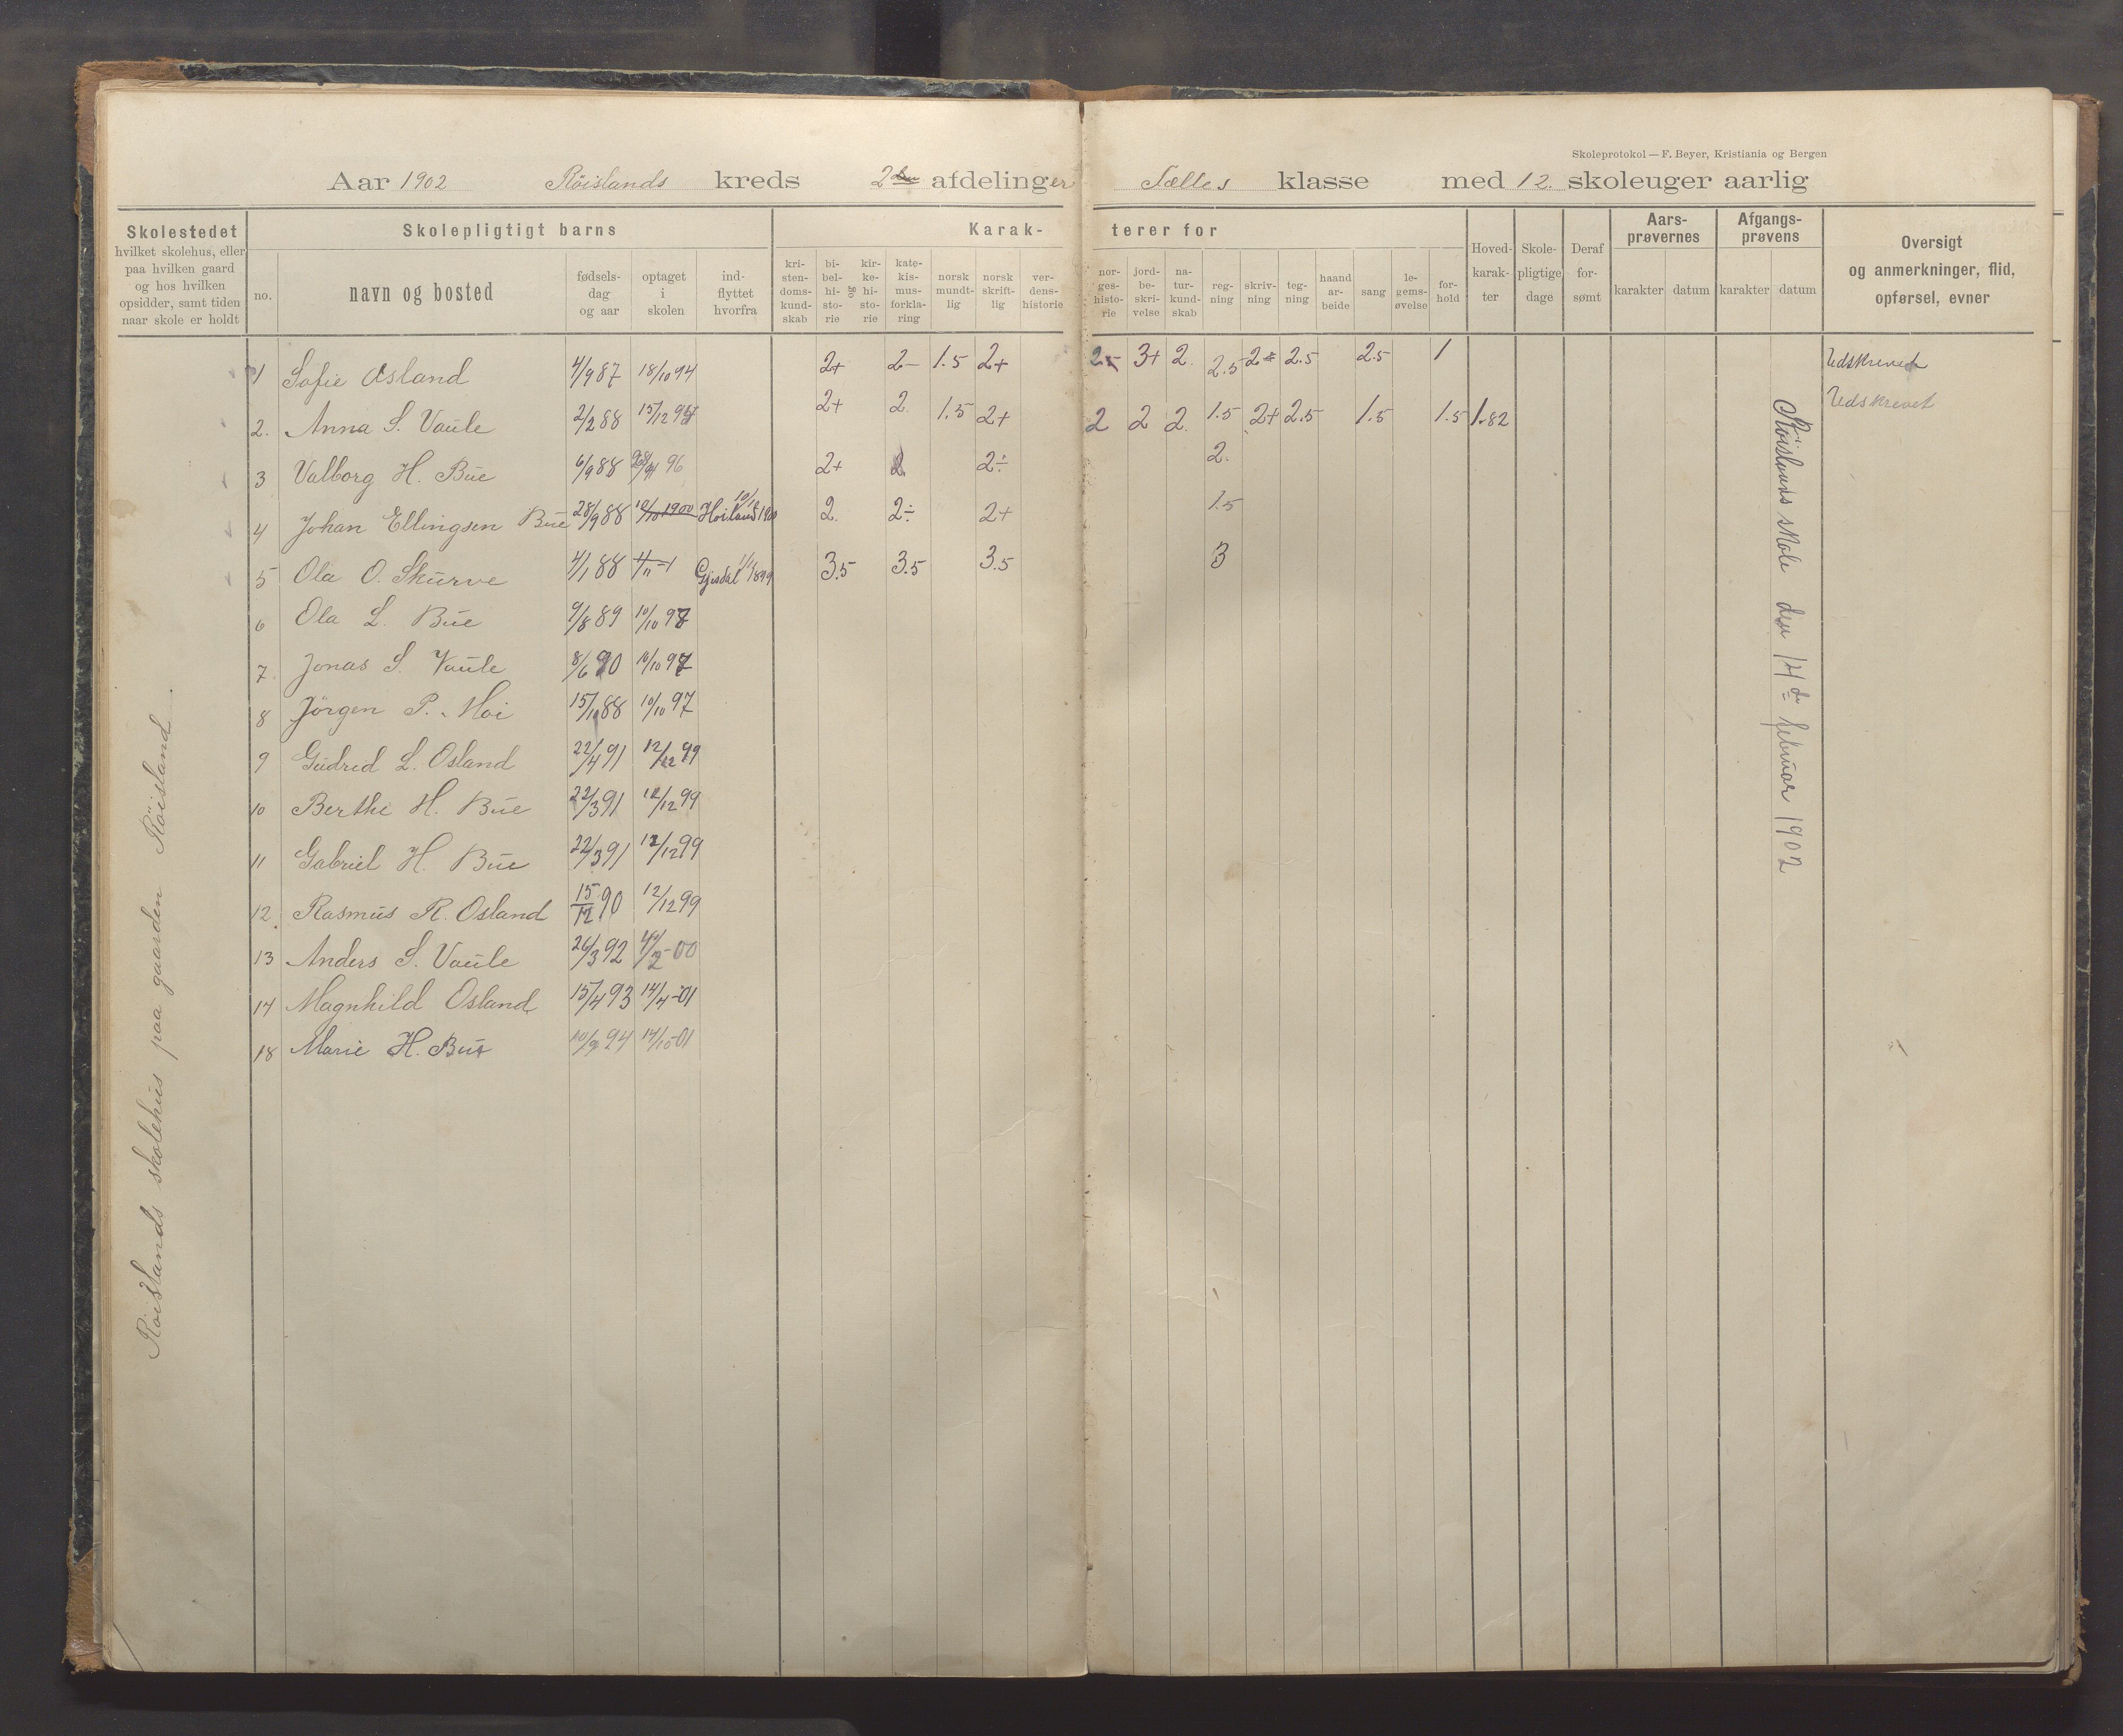 Skoleprotokol — F. Beyer, Kristiania og Bergen
Aar 1902 Röislands kreds 2 afdelinger Fælles klasse med 12. skoleuger aarlig
Skolestedet
hvilket skolehus, eller
paa hvilken gaard
og hos hvilken
opsidder, samt tiden
naar skole er holdt
Skolepligtigt barns
no.
navn og bosted
fødsels-
dag
og aar
optaget
i
skolen
ind-
flyttet
hvorfra
Karak-
terer for
kri-
sten-
doms-
kund-
skab
bi-
bel-
hi-
sto-
rie
og
kir-
ke-
hi-
sto-
rie
kate-
kis-
mus-
forkla-
ring
norsk
mundt-
lig
norsk
skrift-
lig
ver-
dens-
historie
nor-
ges-
histo-
rie
jord-
be-
skri-
velse
na-
tur-
kund-
skab
reg-
ning
skriv-
ning
teg-
ning
haand
ar-
beide
sang
le-
gems-
øvelse
for-
hold
Hoved-
karak-
ter
Skole-
pligtige
dage
Deraf
for-
sømt
Aars-
prøvernes
karakter datum
Afgangs-
prøvens
karakter datum
Oversigt
og anmerkninger, flid,
opførsel, evner
Röislands skolehus paa gaarden Röisland.
1 Sofie Osland 4/9 87 18/10 94 2+ 2- 1.5 2+ 3+ 2. 2.5 2.5 2.5 1 Udskrevet
2. Anna S. Vaule 2/2 88 15/12 2+ 2 1.5 2+ 2 2 2. 1.5 2+ 2.5 1.5 1.5 1.82 Udskrevet
3 Valborg H. Bue 6/9 88 96 2+ 2 2÷ 2.
4 Johan Ellingsen Bue 28/9 88 10/10 1900 Hoiland 2. 2÷ 2+ 1.5
5 Ola O. Skurve 4/1 88 Gjesdal 1/11 1899 3.5 3.5 3.5 3
6 Ola L. Bue 9/8 89 10/10 97
7. Jonas S. Vaule 8/6 90 10/10 97
8 Jörgen P. Moi 15/10 88 10/10 97
9 Gudred L. Osland 22/4 91 12/12 99
10 Berthe H. Bue 22/3 91 12/12 99
11 Gabriel H. Bue 22/3 91 12/12 99
12. Rasmus R. Osland 15/12 90 12/12 99
13 Anders S. Vaule 26/3 92 00
14 Magnhild Osland 15/4 93 14/4-01
18 Marie H. Bue 10/9 94 14/10-01
Röislands skole den 14de februar 1902